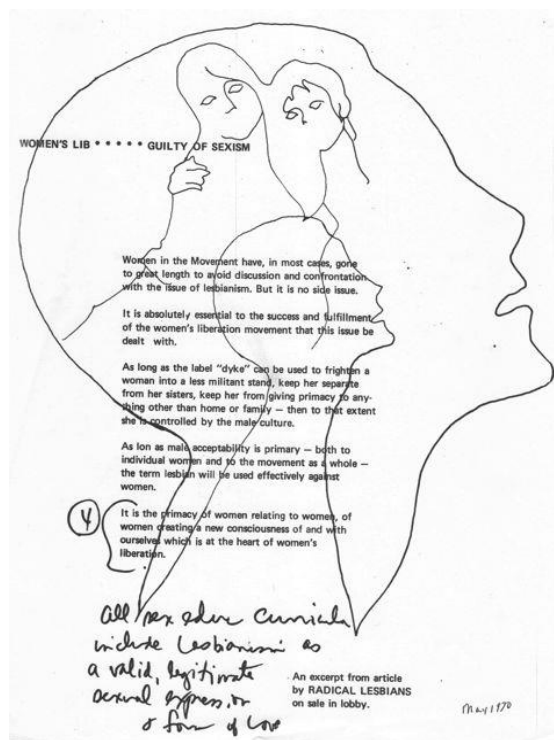 WOMEN'S LIB • • • • • GUILTY OF SEXISM
Women in the Movement have, in most cases, gone
to great length to avoid discussion and confrontation
with the issue of lesbianism. But it is no side issue.
It is absolutely essential to the success and fulfillment
of the women's liberation movement that this issue be
dealt with.
As long as the label "dyke" can be used to frighten a
woman into a less militant stand, keep her separate
from her sisters, keep her from giving primacy to any-
thing other than home or family — then to that extent
she is controlled by the male culture.
As lon as male acceptability is primary — both to
individual women and to the movement as a whole —
the term lesbian will be used effectively against
women.
It is the primacy of women relating to women, of
women creating a new consciousness of and with
ourselves which is at the heart of women's
liberation.
all sex educ curricula
include Lesbianism as
a valid, legitimate
sexual expression
& form of love
An excerpt from article
by RADICAL LESBIANS
on sale in lobby.
May 1970